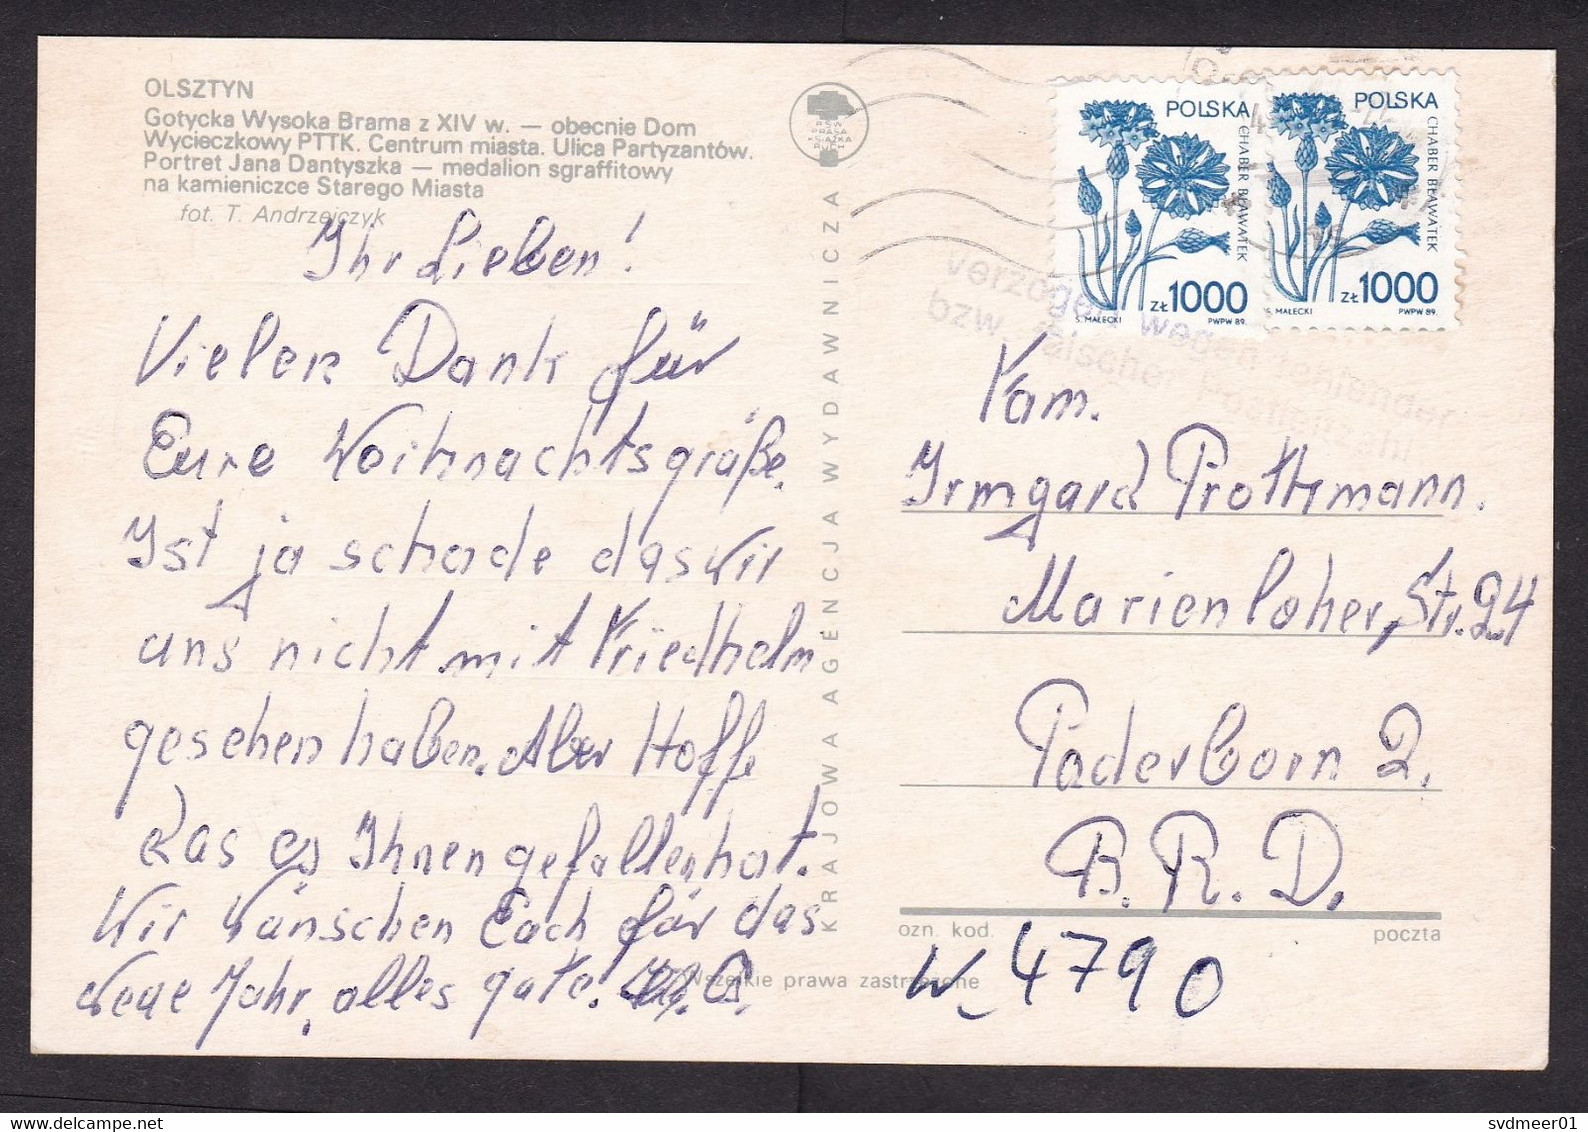 OLSZTYN
Gotycka Wysoka Brama z XIV w. — obecnie Dom
Wycieczkowy PTTK. Centrum miasta. Ulica Partyzantów.
Portret Jana Dantyszka — medalion sgraffitowy
na kamieniczce Starego Miasta
fot. T. Andrzejczyk
Ihr Lieben!
Vielen Dank für
Eure Weihnachtsgrüße.
Ist ja schade das wir
uns nicht mit Friedhelm
gesehen haben. Aber Hoffe
das es Ihnen gefallen hat.
Wir Wünschen Euch für das
Neue Jahr, alles gute!
RSW
PRASA
KSIĄŻKA
RUCH
KRAJOWA AGENCJA WYDAWNICZA
Wszelkie prawa zastrzeżone
POLSKA
CHABER BŁAWATEK
ZŁ 1000
S. MAŁECKI PWPW 89.
POLSKA
CHABER BŁAWATEK
ZŁ 1000
S. MAŁECKI PWPW 89.
verzögert wegen fehlender
bzw. falscher Postleitzahl
Fam.
Irmgard Prothmann.
Marienloher, Str. 24
Paderborn 2.
B. R. D.
ozn. kod. poczta
W-4790
svdmeer01